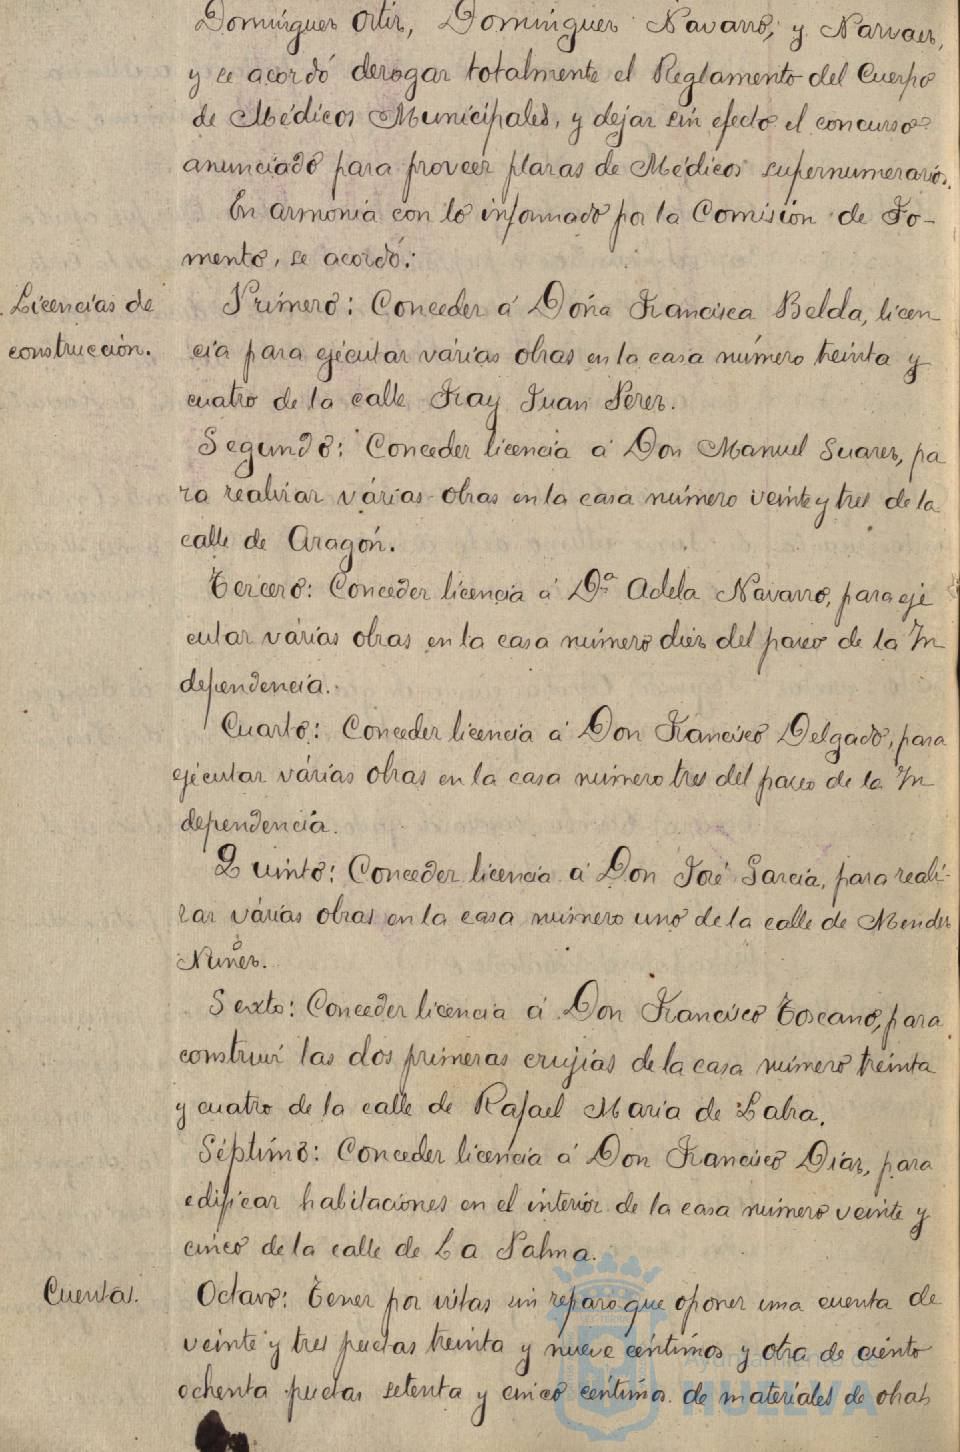 Dominguez Ortiz, Dominguez Navarro, y Narvaez,
y se acordó derogar totalmente el Reglamento del Cuerpo
de Médicos Municipales, y dejar sin efecto el concurso
anunciado para proveer plazas de Médicos supernumerarios.
En armonia con lo informado por la Comisión de Fo-
mento, se acordó:
Licencias de
construcción.
Primero: Conceder á Doña Francisca Belda, licen
cia para ejecutar várias obras en la casa número treinta y
cuatro de la calle Fray Juan Perez.
Segundo: Conceder licencia á Don Manuel Suarez, pa
ra realizar várias obras en la casa número veinte y tres de la
calle de Aragón.
Tercero: Conceder licencia á Dª Adela Navarro, para eje
cutar várias obras en la casa número diez del paseo de la In
dependencia.
Cuarto: Conceder licencia á Don Francisco Delgado, para
ejecutar várias obras en la casa número tres del paseo de la In
dependencia.
Quinto: Conceder licencia á Don José Garcia, para reali-
zar várias obras en la casa número uno de la calle de Mendez
Nuñez.
Sexto: Conceder licencia á Don Francisco Toscano, para
construir las dos primeras crujias de la casa número treinta
y cuatro de la calle de Rafael Maria de Labra.
Séptimo: Conceder licencia á Don Francisco Diaz, para
edificar habitaciones en el interior de la casa número veinte y
cinco de la calle de La Palma.
Cuentas.
Octavo: Tener por vistas sin reparo que oponer una cuenta de
veinte y tres pesetas treinta y nueve centimos y otra de ciento
ochenta pesetas setenta y cinco centimos de materiales de obras
Ayuntamiento de
HUELVA